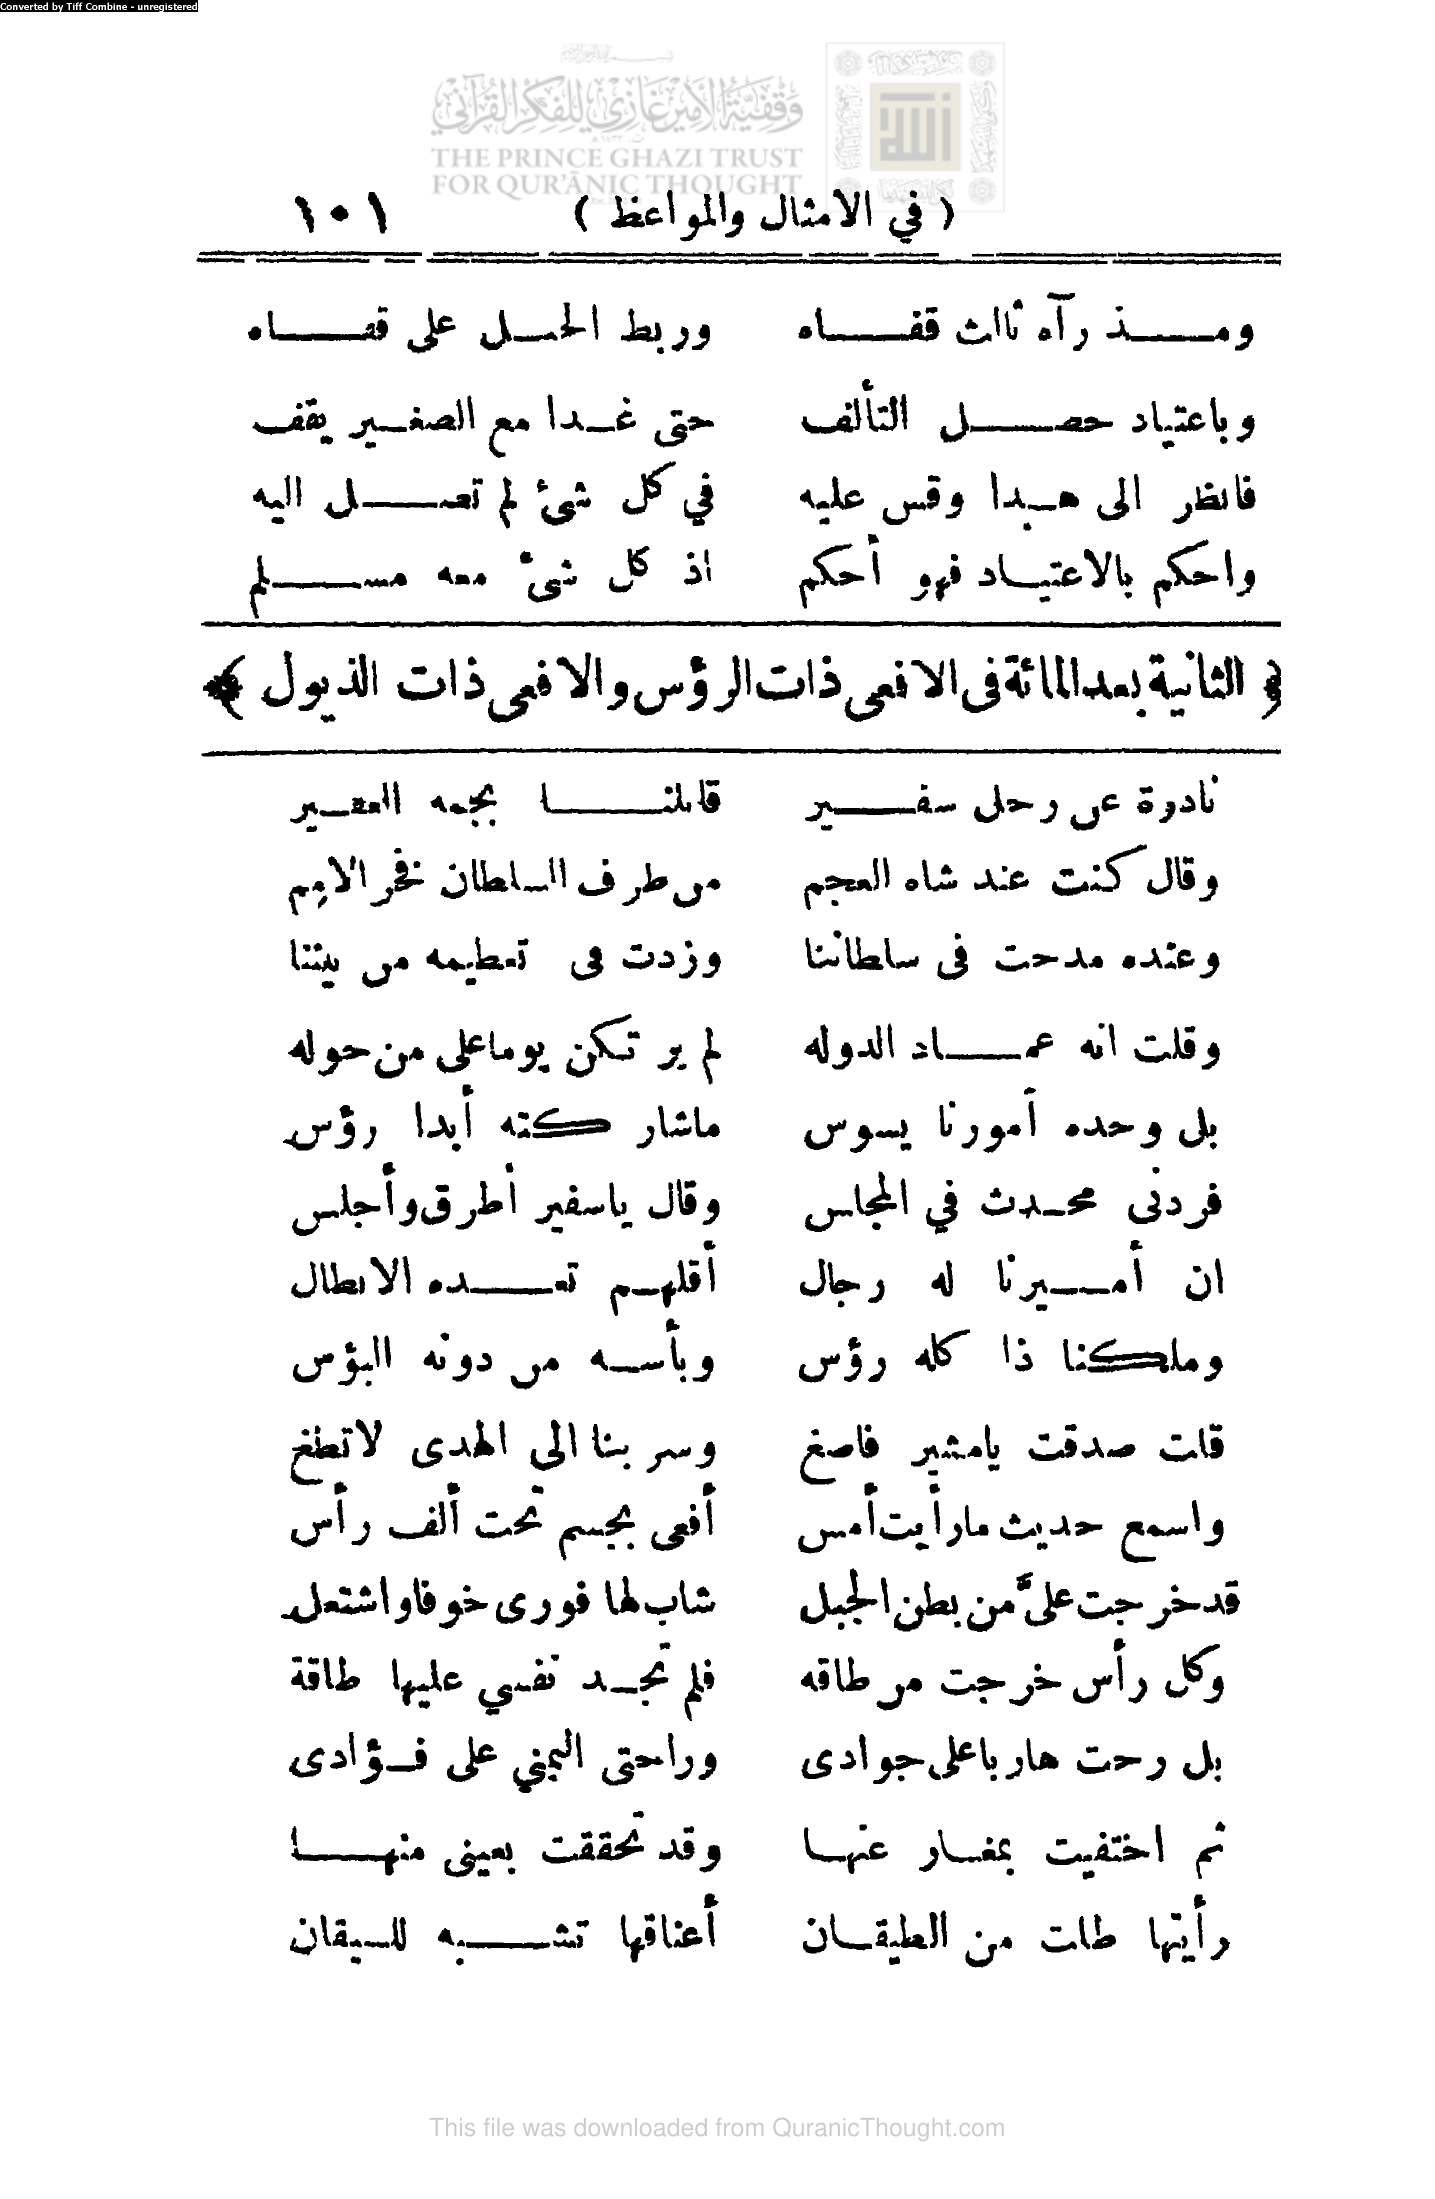 Converted by Tiff Combine - unregistered
وقفية الأمير غازي للفكر القرآني
THE PRINCE GHAZI TRUST
FOR QUR'ĀNIC THOUGHT
( في الامثال والمواعظ ) ١٠١
ومـذ رآه ثالث قفـاه وربط الحبـل على قفـاه
وباعتياد حصـل التألف حتى غـدا مع الصغـير يقف
فانظر الى هـذا وقس عليه في كل شئ لم تصـل اليه
واحكم بالاعتيـاد فهو أحكم اذ كل شئ معه مسـلم
﴿ الثانية بعد المائة فى الافعى ذات الرؤس والافعى ذات الذيول ﴾
نادرة عن رجل سفـير قابلنـا بجمعه الغفـير
وقال كنت عند شاه العجم من طرف السلطان فخر الامم
وعنده مدحت فى سلطاننا وزدت فى تعظيمه من بيننا
وقلت انه عمـاد الدوله لم ير تكن يوما على من حوله
بل وحده أمورنا يسوس ماشاركته أبدا رؤس
فردنى محـدث في المجلس وقال ياسفير أطرق وأجلس
ان أمـيرنا له رجال أقلهـم تعـده الابطال
وملكنا ذا كله رؤس وبأسـه من دونه البؤس
قلت صدقت يامشير فاصغ وسر بنا الى الهدى لاتطغ
واسمع حديث مارأيت أمس أفعى بجسم تحت ألف رأس
قد خرجت علىَّ من بطن الجبل شاب لها فورى خوفا واشتعل
وكل رأس خرجت من طاقه فلم تجـد نفسي عليها طاقة
بل رحت هاربا على جوادى وراحتى اليمني على فـؤادى
ثم اختفيت بمغـار عنهـا وقد تحققت بعينى منهـا
رأيتها طلت من الطيقـان أعناقها تشـبه للسيقان
This file was downloaded from QuranicThought.com